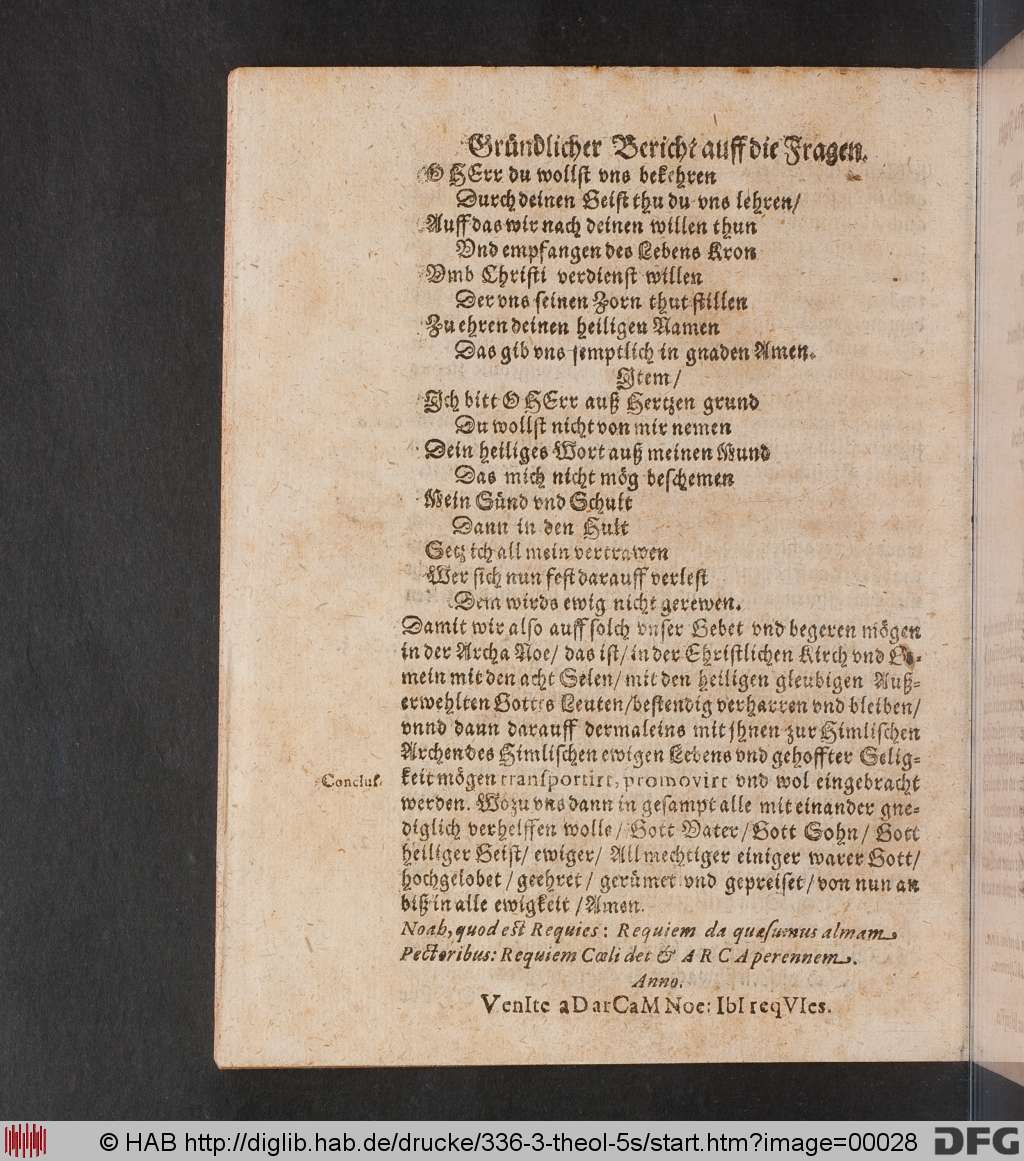 Gründlicher Bericht auff die Fragen.
O HErr du wollst vns bekehren
Durch deinen Geist thu du vns lehren/
Auff das wir nach deinen willen thun
Vnd empfangen des Lebens Kron
Vmb Christi verdienst willen
Der vns seinen Zorn thut stillen
Zu ehren deinen heiligen Namen
Das gib vns semptlich in gnaden Amen.
Jtem/
Jch bitt O HErr auß Hertzen grund
Du wollst nicht von mir nemen
Dein heiliges Wort auß meinen Mund
Das mich nicht mög beschemen
Mein Sünd vnd Schult
Dann in den Hult
Setz ich all mein vertrawen
Wer sich nun fest darauff verlest
Dem wirds ewig nicht gerewen.
Damit wir also auff solch vnser Gebet vnd begeren mögen
in der Archa Noe/ das ist/ in der Christlichen Kirch vnd Ge-
mein mit den acht Selen/ mit den heiligen gleubigen Auß-
erwehlten Gottes Leuten/bestendig verharren vnd bleiben/
vnnd dann darauff dermaleins mit jhnen zur Himlischen
Archen des Himlischen ewigen Lebens vnd gehoffter Selig-
Conclus.
keit mögen transportirt, promovirt vnd wol eingebracht
werden. Wozu vns dann in gesampt alle mit einander gne-
diglich verhelffen wolle/ Gott Vater/ Gott Sohn/ Gott
heiliger Geist/ ewiger/ Allmechtiger einiger warer Gott/
hochgelobet/ geehret/ gerümet vnd gepreiset/ von nun an
biß in alle ewigkeit/ Amen.
Noah, quod est Requies: Requiem da quæsumus almam
Pectoribus: Requiem Cœli det & ARCA perennem.
Anno.
VenIte aD arCaM Noe: IbI reqVIes.
© HAB http://diglib.hab.de/drucke/336-3-theol-5s/start.htm?image=00028
DFG